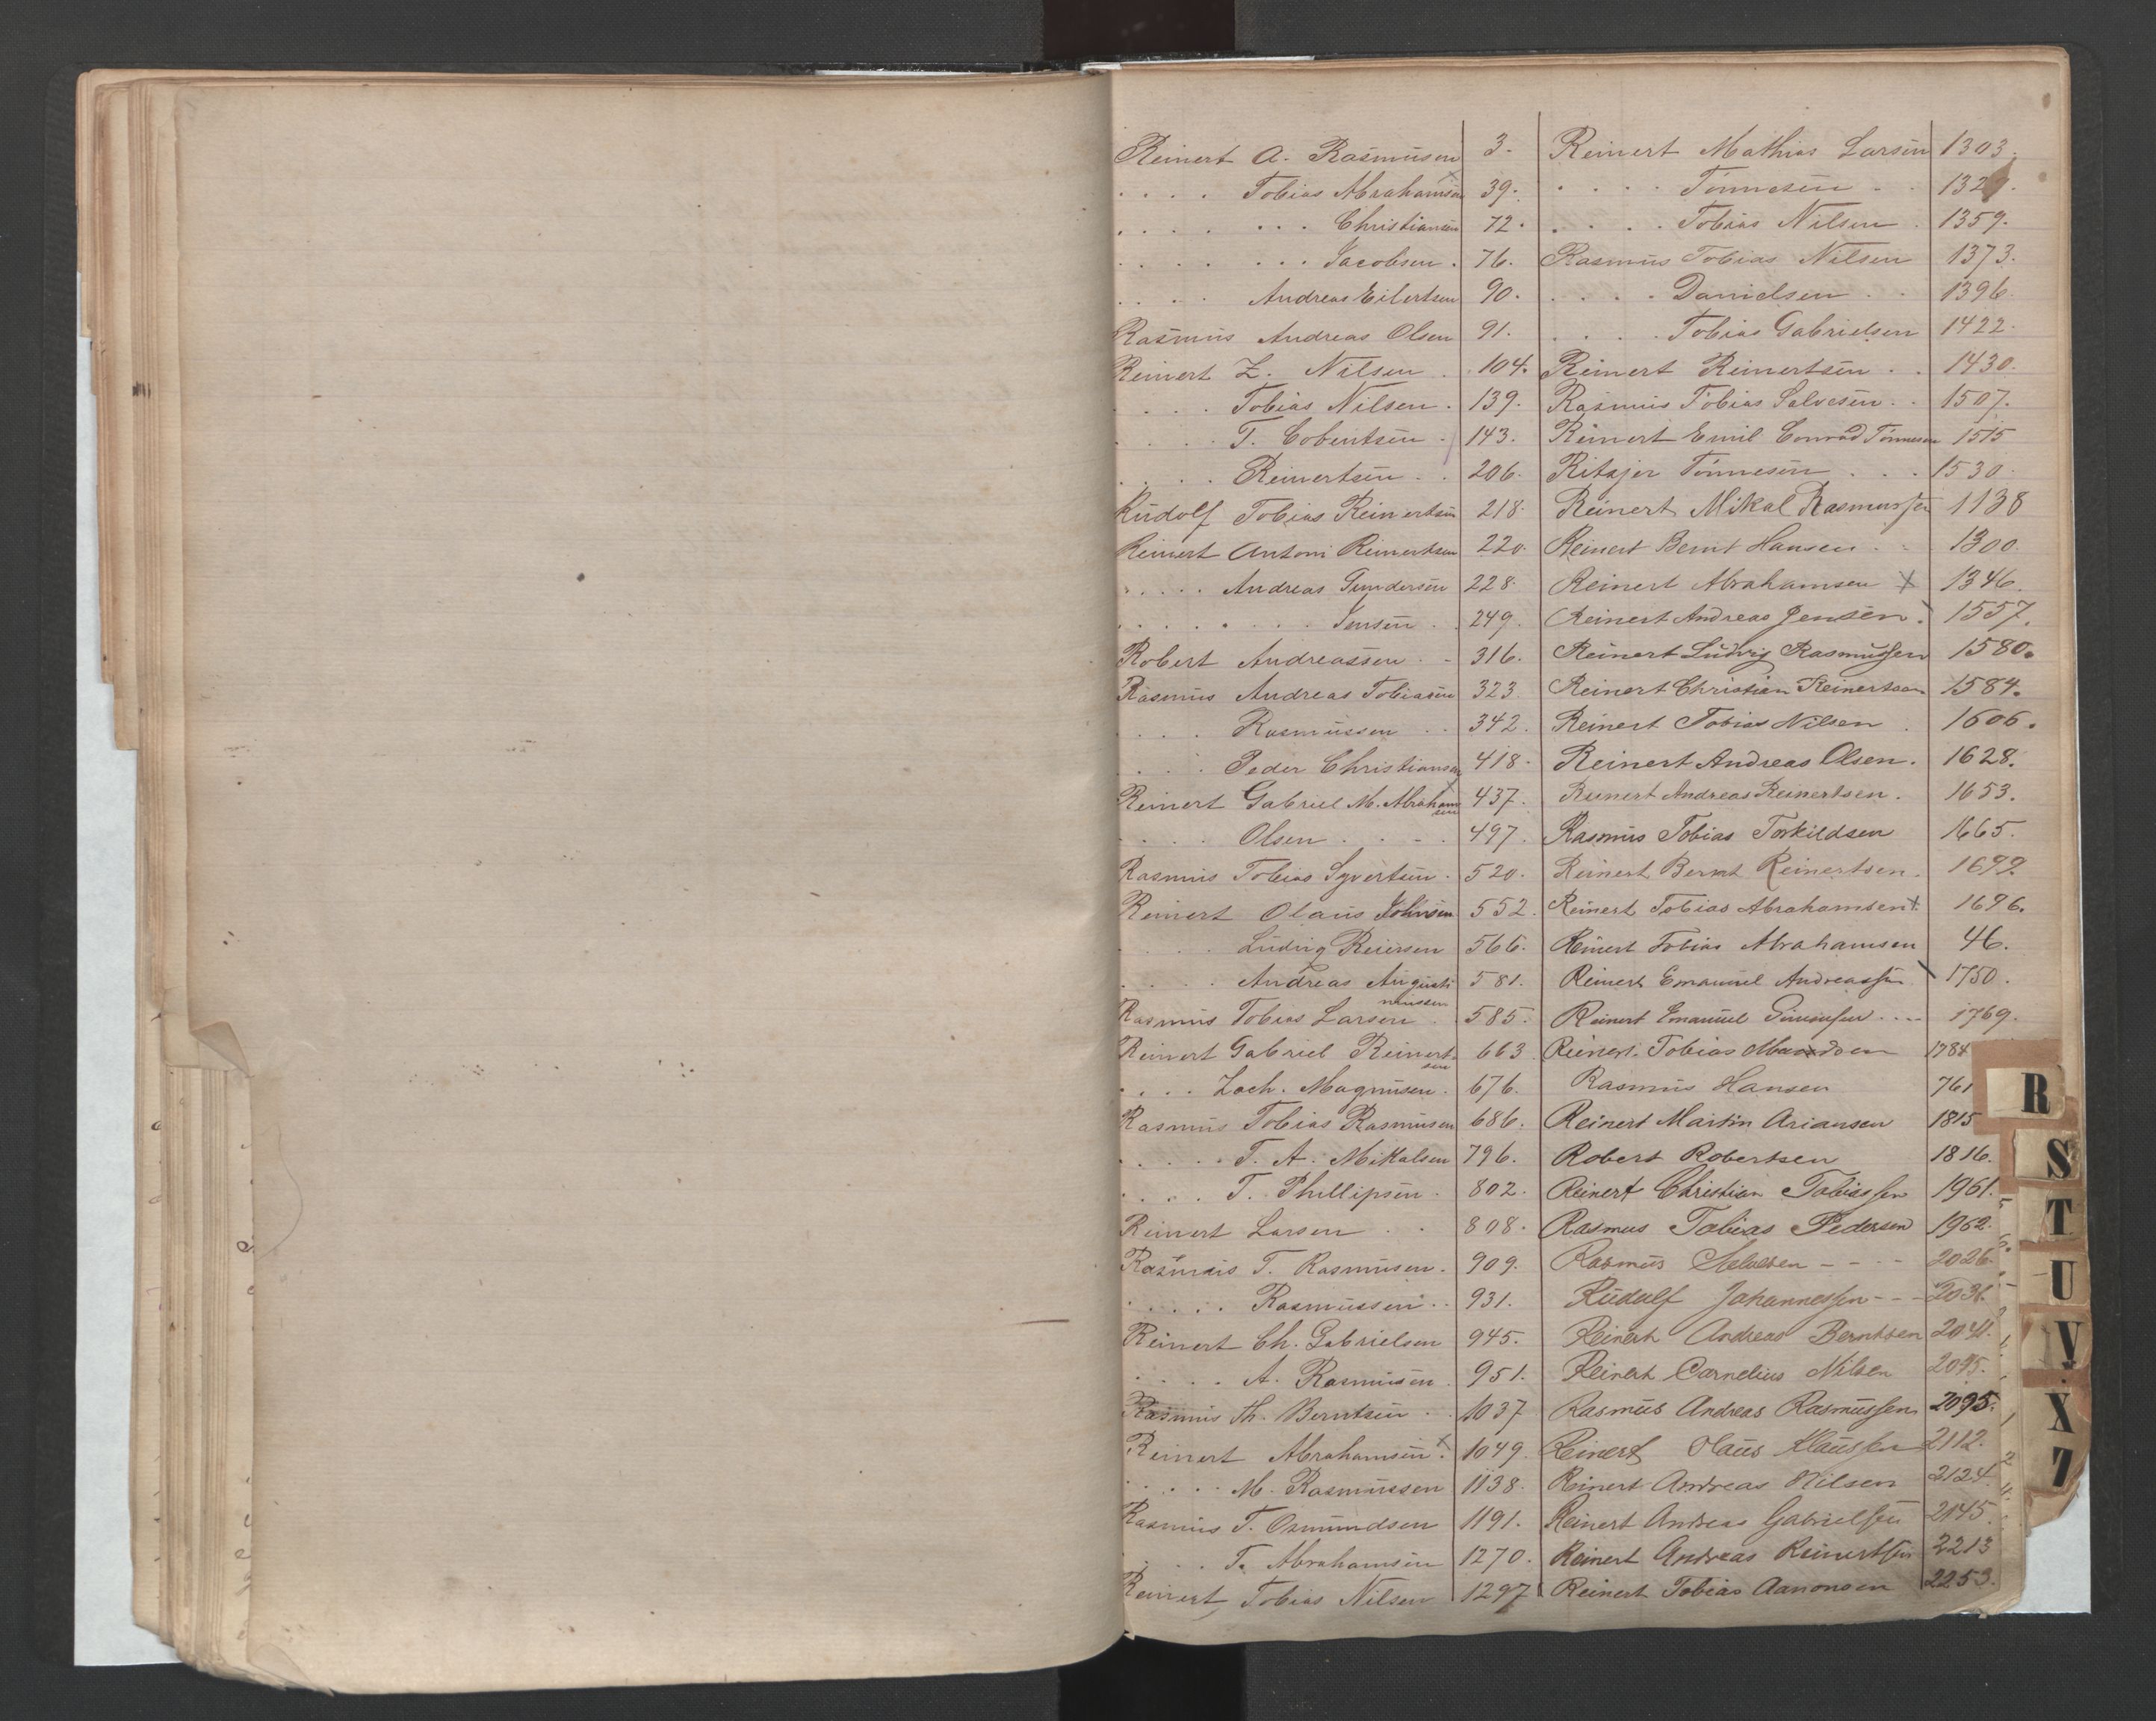 Reinert A. Rasmusen 3.
. . . . Tobias Abrahamsen × 39.
. . . . . . . Christiansen 72.
. . . . . . . Jacobsen . 76.
. . . . Andreas Eilertsen 90.
Rasmus Andreas Olsen 91.
Reinert Z. Nilsen . 104.
. . . . Tobias Nilsen . 139.
. . . . T. . 143.
. . . . Reinertsen . . 206.
Rudolf Tobias Reinertsen 218.
Reinert Antoni Reinertsen 220.
. . . . . Andreas Gundersen 228.
. . . . . . . . Jensen . . 249.
Robert Andreassen . - 316.
Rasmus Andreas Tobiasen 323.
. . . . Rasmussen . . 342.
. . . . Peder Christiansen 418.
Reinert Gabriel M. Abraham
sen × 437.
. . . . Olsen . . . . 497.
Rasmus Tobias Syvertsen . 520.
Reinert Olaus Johnsen 552.
. . . . Ludvig Reiersen 566.
. . . . Andreas Augusti
nussen 581.
Rasmus Tobias Larsen . 585.
Reinert Gabriel Reinert
sen 663.
. . . . Zach. Magnusen . 676.
Rasmus Tobias Rasmusen 686.
. . . . . T. A. Mikalsen 796.
. . . . T. Phillipsen . 802.
Reinert Larsen . . 808.
Rasmus T. Rasmusen . 909.
. . . . . Rasmussen . . 931.
Reinert Ch. Gabrielsen 945.
. . . . A. Rasmusen . 951.
Rasmus Th. Berntsen . . 1037
Reinert Abrahamsen × . 1049.
. . . . . M. Rasmussen 1138.
Rasmus T. Osmundsen 1191.
. . . . T. Abrahamsen 1270.
Reinert Tobias Nilsen 1297
Reinert Mathias Larsen 1303.
. . . . Tönnesen . . 1329.
. . . . Tobias Nilsen . 1359.
Rasmus Tobias Nilsen 1373.
. . . . Danielsen . . 1396.
. . . . Tobias Gabrielsen 1422.
Reinert Reinertsen . . 1430.
Rasmus Tobias Salvesen . . 1507.
Reinert Emil Conrad Tönnesen 1515
Tönnesen . . . 1530.
Reinert Mikal Rasmussen 1138
Reinert Bernt Hansen . . 1300.
Reinert Abrahamsen × 1346.
Reinert Andreas Jensen . 1557.
Reinert Ludvig Rasmussen 1580.
Reinert Christian Reinertsen 1584.
Reinert Tobias Nilsen . 1606.
Reinert Andreas Olsen . 1628.
Reinert Andreas Reinertsen . 1653.
Rasmus Tobias Torkildsen 1665.
Reinert Bernt Reinertsen . 1692.
Reinert Tobias Abrahamsen × 1696.
Reinert Tobias Abrahamsen 46.
Reinert Emanuel Andreassen 1750.
Reinert Emanuel . . . . 1769.
Reinert Tobias 1784
Rasmus Hansen 761
Reinert Martin Ariansen 1815
Robert Robertsen 1816.
Reinert Christian Tobiassen 1961.
Rasmus Tobias Pedersen 1962.
Rasmus Salvesen - - - 2026.
Rudolf Johannessen - - - 2031.
Reinert Andreas Berntsen 2041.
Reinert Cornelius Nilsen 2045.
Rasmus Andreas Rasmussen 2095.
Reinert Olaus Klaussen 2112.
Reinert Andreas Nilsen 2124.
Reinert Andreas Gabrielsen 2145.
Reinert Andreas Reinertsen 2213
Reinert Tobias Aanonsen 2253.
R
S
T
U
V
X
Z